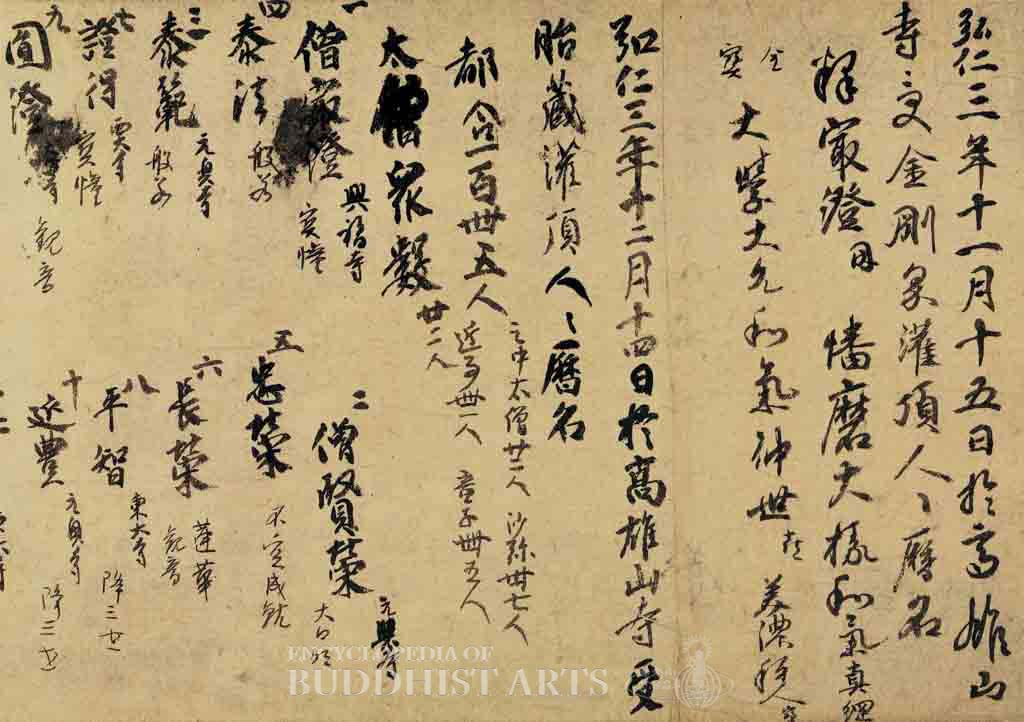 弘仁三年十一月十五日於高雄山
寺受金剛界灌頂人々暦名
釋最澄 因 幡磨大掾和氣真綱
金
大學大允和氣仲世 喜 美濃種人 寶
寶
弘仁三年十二月十四日於高雄山寺受
胎藏灌頂人々暦名
都合一百卌五人 之中太僧廿二人 沙弥卅七人
近事卌一人 童子卌五人
太僧衆數 廿二人
一 僧最澄 興福寺 寶幢
二 僧賢榮 元興寺 大日
四 泰法 般若
五 忠榮 不空成就
三 泰範 元興寺 般若
六 長榮 蓮華 觀音
七 證得 寶幢
八 平智 東大寺 降三世
九 圓澄 觀音
十 延豊 元興寺 降三世
ENCYCLOPEDIA OF
BUDDHIST ARTS